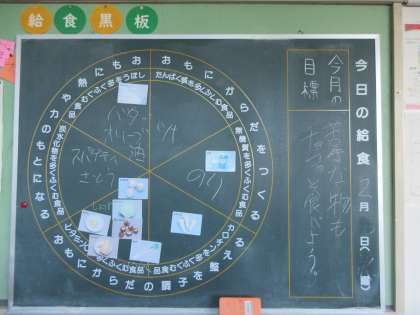 給食黒板
今日の給食
2月 日(  )
今月の目標
苦手な物も
おもにからだをつくる
おもにからだの調子を整える
おもに熱や力のもとになる
たんぱく質を多くふくむ食品
無機質を多くふくむ食品
カロチンを多くふくむ食品
ビタミンCを多くふくむ食品
炭水化物を多くふくむ食品
しぼうを多くふくむ食品
バター
オリーブ油
ツナ
スパゲティ
さとう
のり